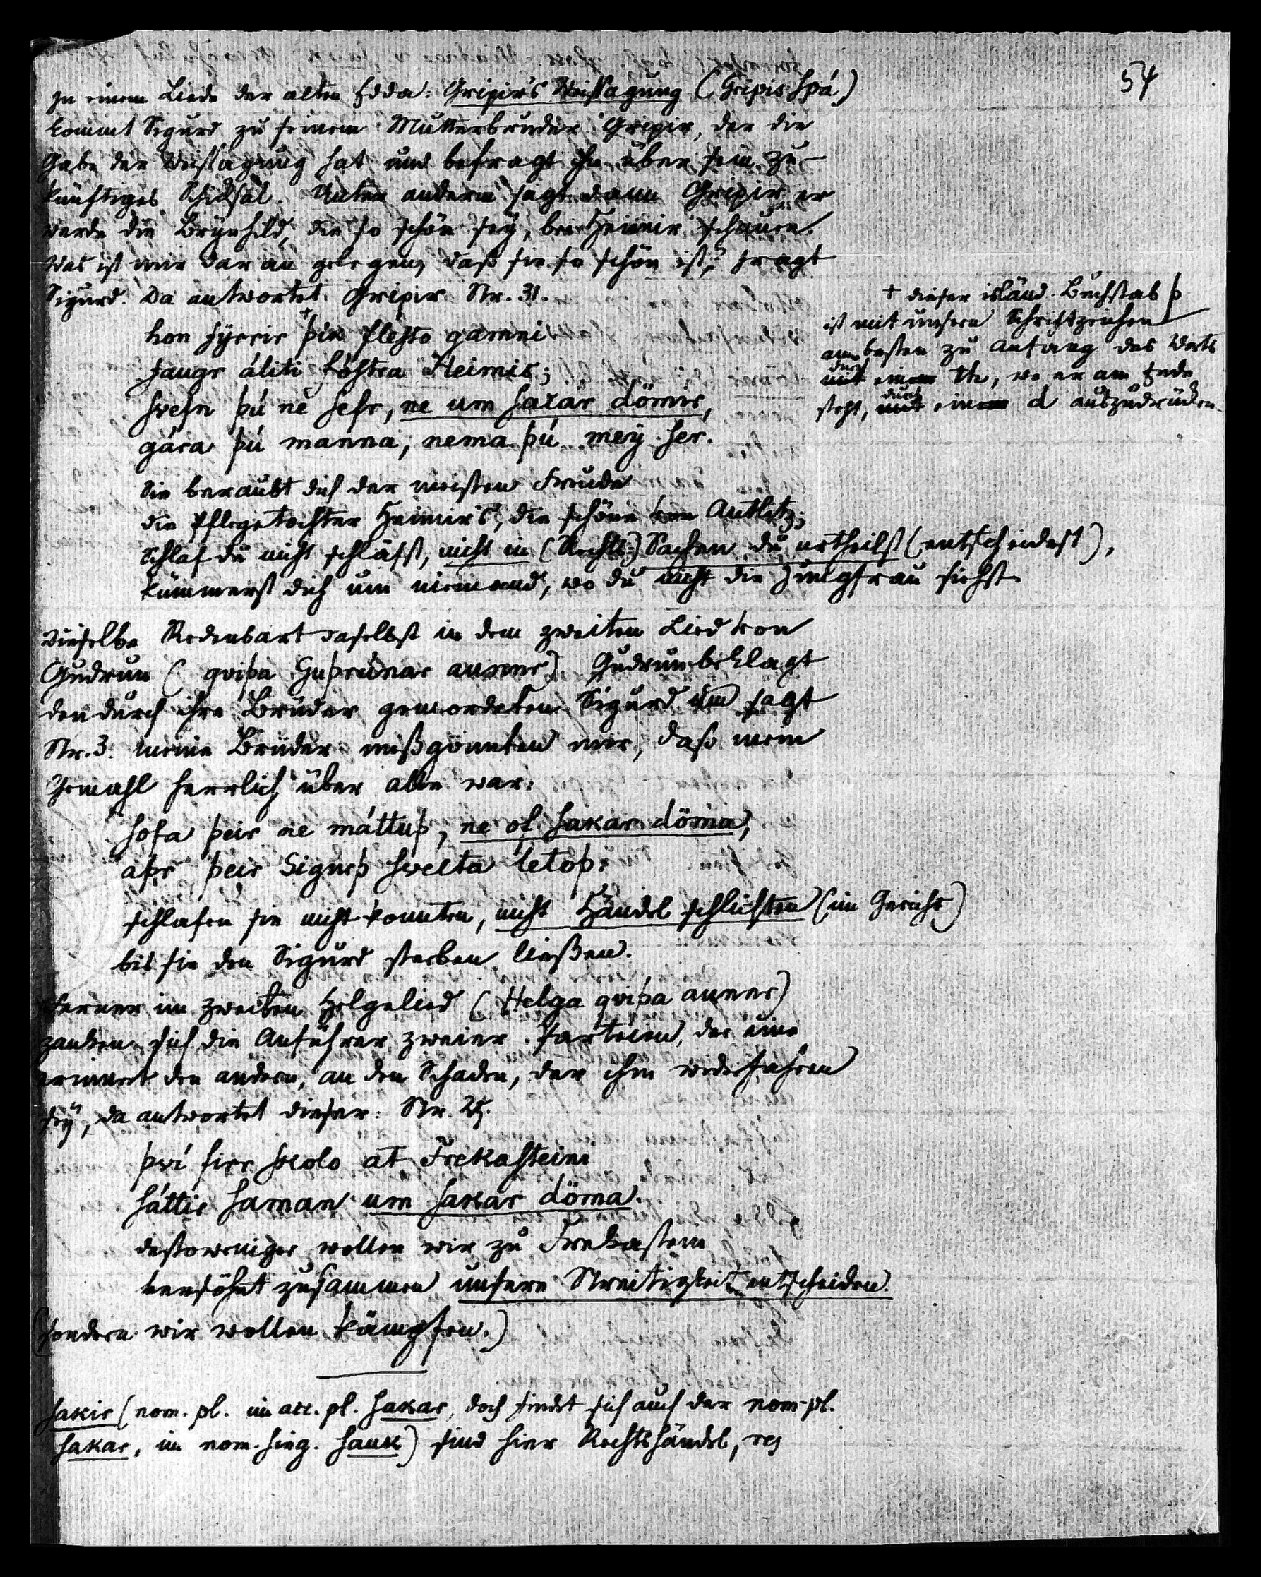 54
In einem Liede der alten Edda: Gripir's Weissagung (Gripis spá)
kommt Sigurd zu seinem Mutterbruder Gripir, der die
Gabe der Weissagung hat und befragt ihn über sein zu-
künftiges Schicksal. Unter anderm sagt dann Gripir er
werde die Brynhild, die so schön sey, bei Heimir schauen.
Was ist mir daran gelegen, daß sie so schön ist? fragt
Sigurd. Da antwortet Gripir Str. 31.
hon fyrrir + þik flesto gamni
faugr áliti fóstra Heimis;
svefn þú ne sefr, ne um sakar dömir,
gára þú manna, nema þú mey ser.
+ dieser isländ. Buchstab þ
ist mit unsern Schriftzeichen
am besten zu Anfang des Worts
durch
mit einem th, wo er am Ende
durch
steht, mit einem d auszudrücken.
Sie beraubt dich der meisten Freude
die Pflegetochter Heimir's, die schöne von Antlitz;
Schlaf du nicht schläfst, nicht in (Rechts) Sachen du urtheilst (entscheidest),
kümmerst dich um niemand, wo du nicht die Jungfrau siehst
Dieselbe Redensart daselbst in dem zweiten Lied von
Gudrun (qviþa Guþrúnar aunnr). Gudrun beklagt
den durch ihre Brüder gemordeten Sigurd und sagt
Str. 3. meine Brüder mißgönnten mir, daß mein
Gemahl herrlich über alle war:
sofa þeir ne máttuþ, ne of sakar döma,
aþr þeir Sigurþ svelta létoþ.
schlafen sie nicht konnten, nicht Händel schlichten (im Gericht)
bis sie den Sigurd sterben ließen.
Ferner im zweiten Helgelied (Helga qviþa aunnr)
zanken sich die Anführer zweier Parteien, der eine
erinnert den andern, an den Schaden, der ihm widerfahren
sey, da antwortet dieser: Str. 25.
þvi firr skolo at Frekasteini
sáttir saman um sakar döma.
destoweniger wollen wir zu Frekastein
versöhnt zusammen unsere Streitigkeit entscheiden
(sondern wir wollen kämpfen.)
sakir (nom. pl. im acc. pl. sakar, doch findet sich auch der nom. pl.
sakar, im nom. sing. sauk) sind hier Rechtshändel, res